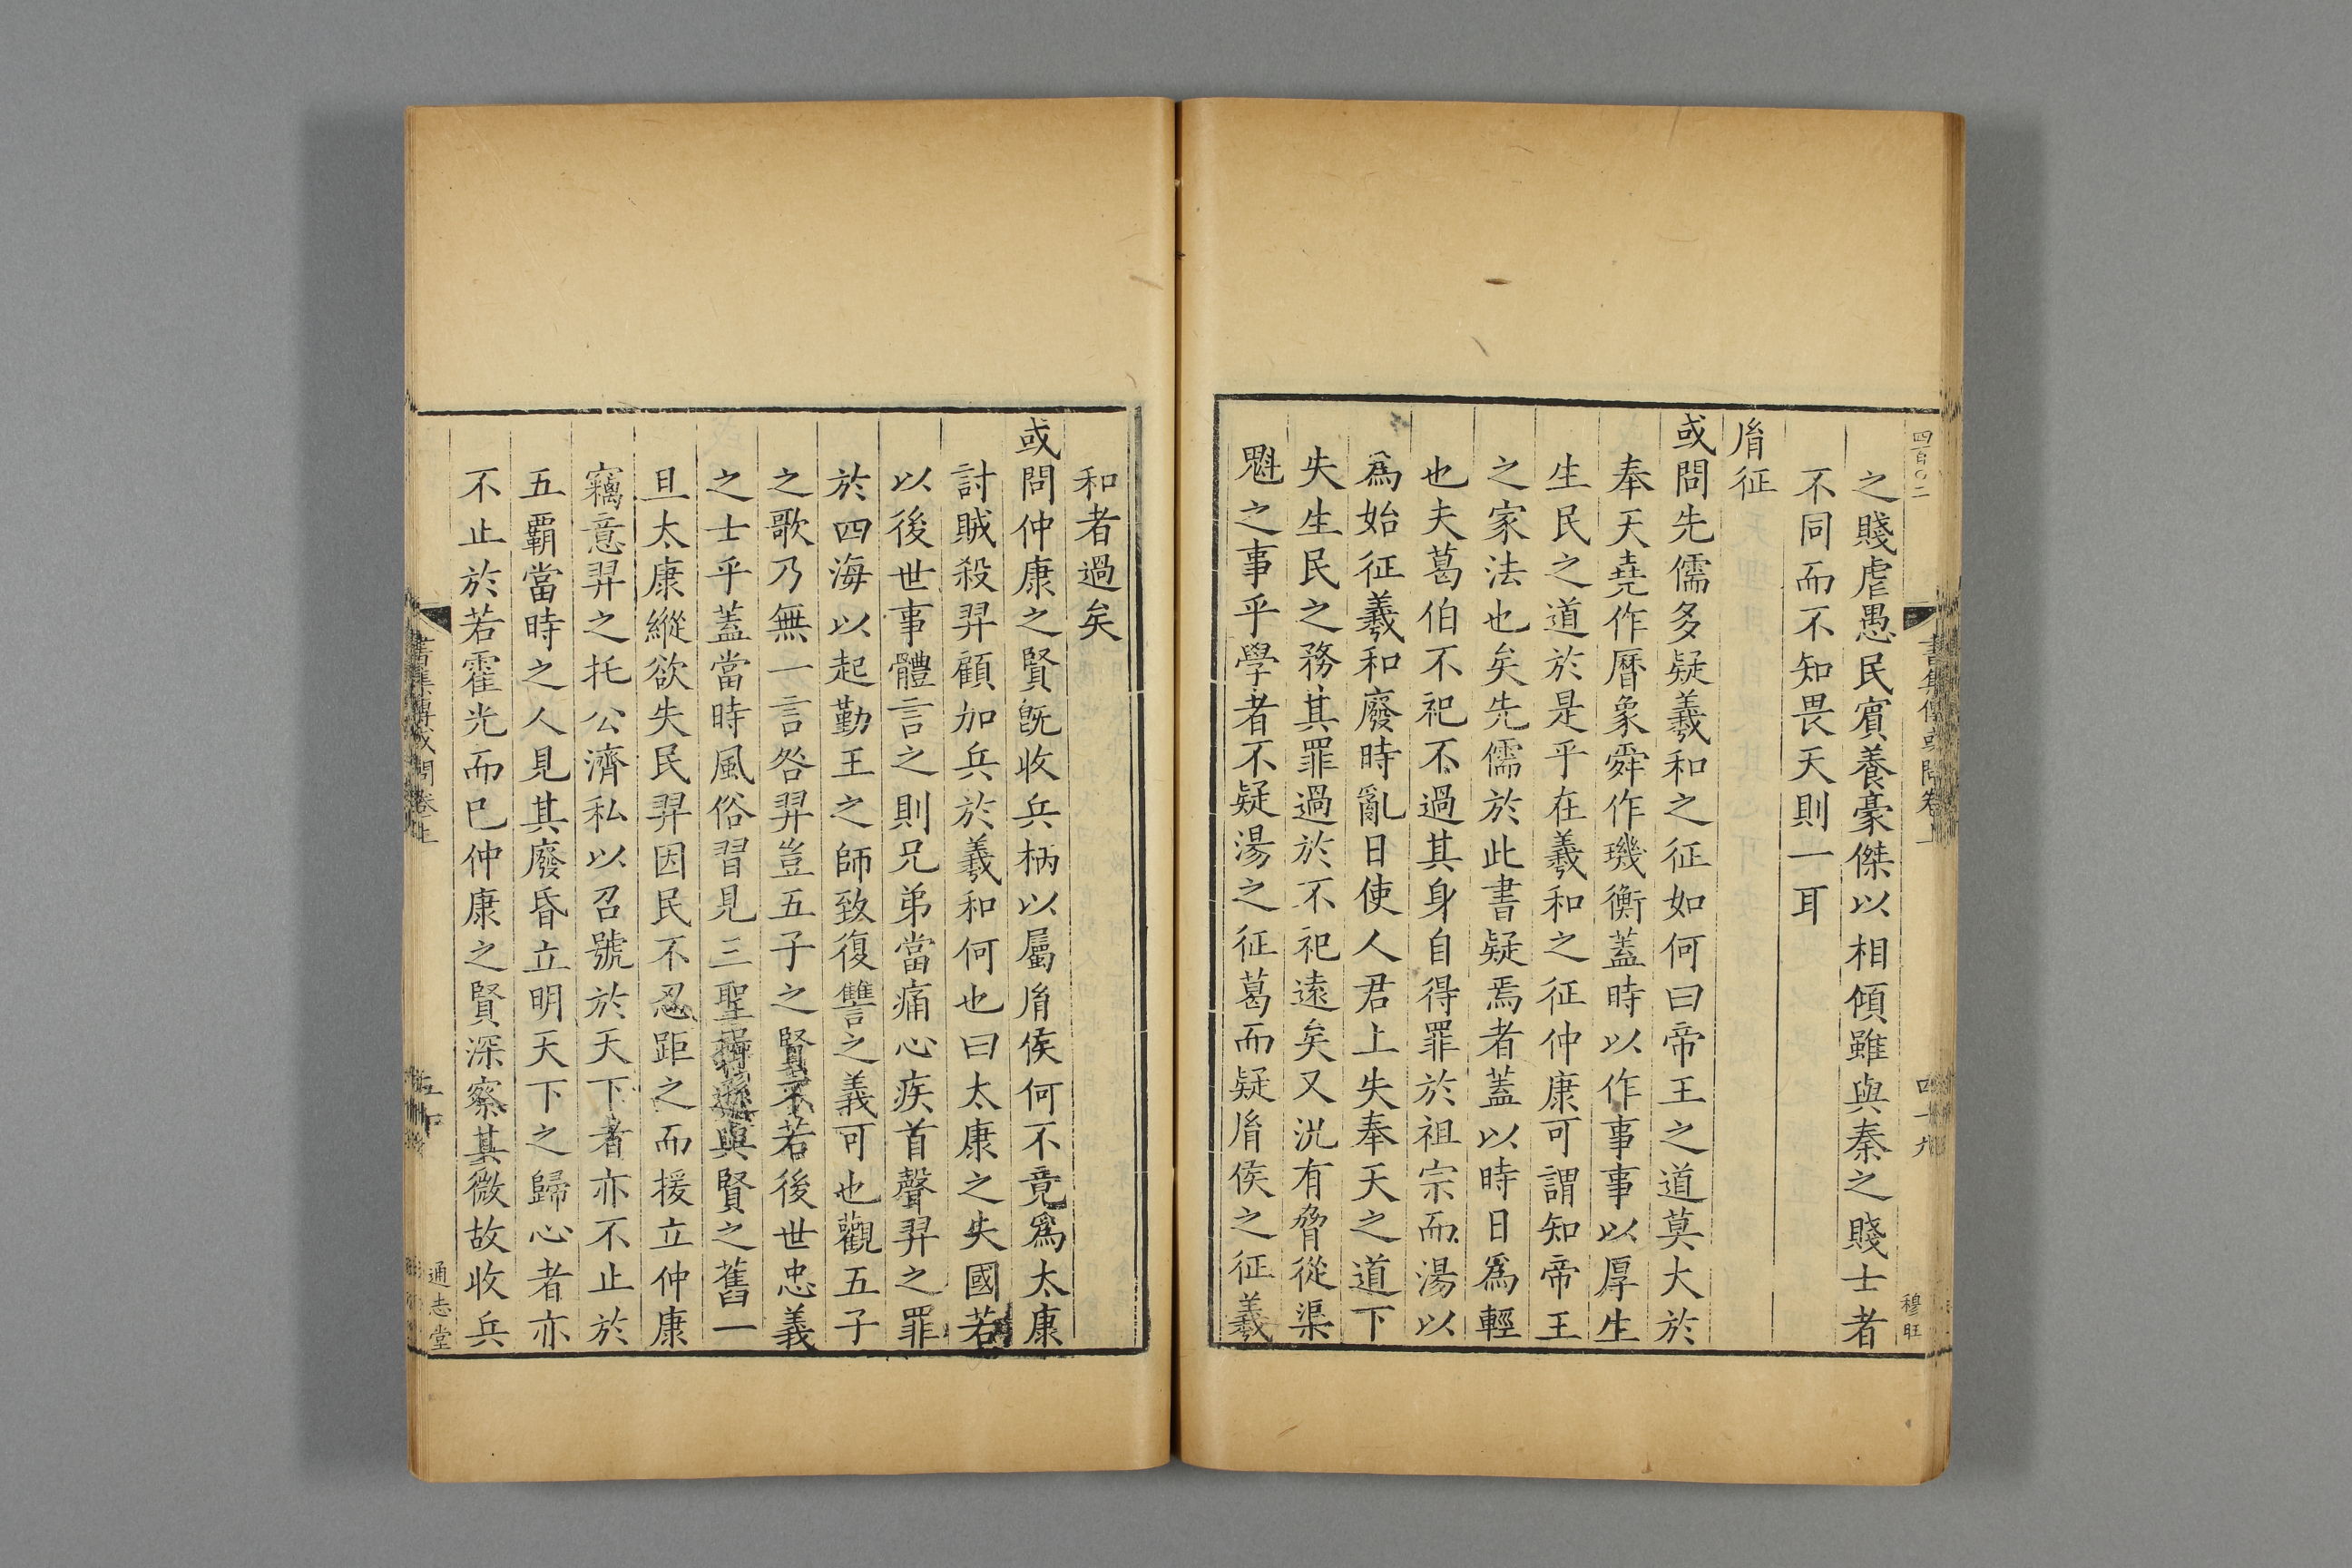 四百〇二
書集傳或問卷上
四十九
穆旺
之賤虐愚民賓養豪傑以相傾雖與秦之賤士者
不同而不知畏天則一耳
胤征
或問先儒多疑羲和之征如何曰帝王之道莫大於
奉天堯作曆象舜作璣衡蓋時以作事事以厚生
生民之道於是乎在羲和之征仲康可謂知帝王
之家法也矣先儒於此書疑焉者蓋以時日爲輕
也夫葛伯不祀不過其身自得罪於祖宗而湯以
爲始征羲和廢時亂日使人君上失奉天之道下
失生民之務其罪過於不祀遠矣又況有脅從渠
魁之事乎學者不疑湯之征葛而疑胤侯之征羲
和者過矣
或問仲康之賢旣收兵柄以屬胤侯何不竟爲太康
討賊殺羿顧加兵於羲和何也曰太康之失國若
以後世事體言之則兄弟當痛心疾首聲羿之罪
於四海以起勤王之師致復讐之義可也觀五子
之歌乃無一言咎羿豈五子之賢不若後世忠義
之士乎蓋當時風俗習見三聖禪遜與賢之舊一
旦太康縱欲失民羿因民不忍距之而援立仲康
竊意羿之托公濟私以召號於天下者亦不止於
五覇當時之人見其廢昏立明天下之歸心者亦
不止於若霍光而已仲康之賢深察其微故收兵
書集傳或問卷上
五十
通志堂